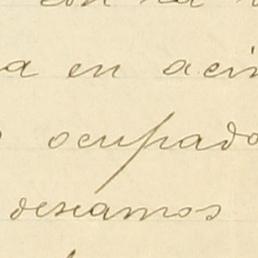 con la
a en acin
ocupado
deseamos